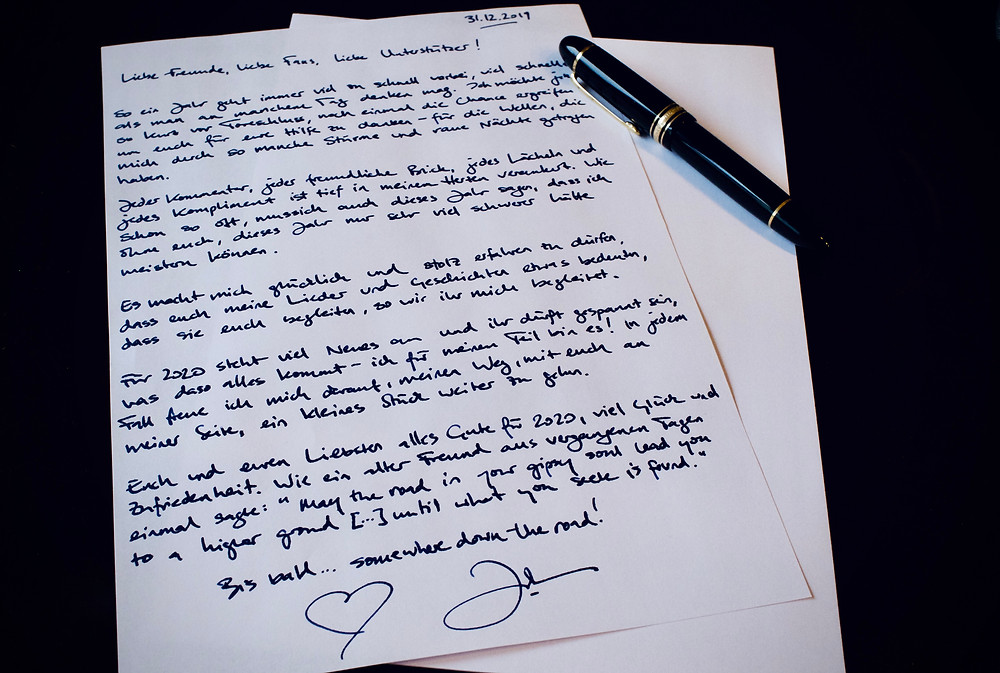 31.12.2019
Liebe Freunde, liebe Fans, liebe Unterstützer!
So ein Jahr geht immer viel zu schnell vorbei, viel schneller
als man an manchem Tag denken mag. Ich möchte jetzt
so kurz vor Toreschluss, noch einmal die Chance ergreifen
um euch für eure Hilfe zu danken - für die Wellen, die
mich durch so manche Stürme und raue Nächte getragen
haben.
Jeder Kommentar, jeder freundliche Blick, jedes Lächeln und
jedes Kompliment ist tief in meinem Herzen verankert. Wie
schon so oft, muss ich auch dieses Jahr sagen, dass ich
ohne euch, dieses Jahr nur sehr viel schwerer hätte
meistern können.
Es macht mich glücklich und stolz erfahren zu dürfen,
dass euch meine Lieder und Geschichten etwas bedeuten,
dass sie euch begleiten, so wie ihr mich begleitet.
Für 2020 steht viel Neues an und ihr dürft gespannt sein,
was da so alles kommt - ich für meinen Teil bin es! In jedem
Fall freue ich mich darauf, meinen Weg, mit euch an
meiner Seite, ein kleines Stück weiter zu gehn.
Euch und euren Liebsten alles Gute für 2020, viel Glück und
Zufriedenheit. Wie ein alter Freund aus vergangenen Tagen
einmal sagte: "May the road in your gipsy soul lead you
to a higher ground [...] until what you seek is found."
Bis bald... somewhere down the road!